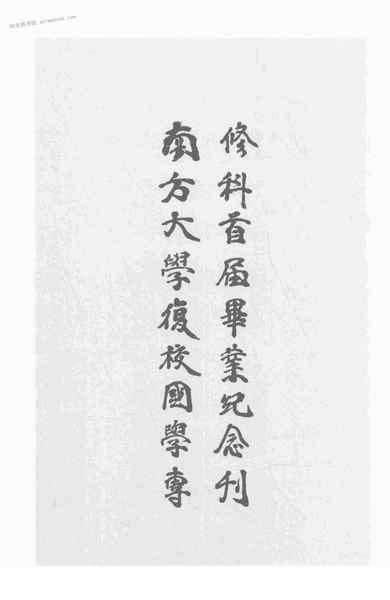 南方大學復校國學專
修科首屆畢業紀念刊